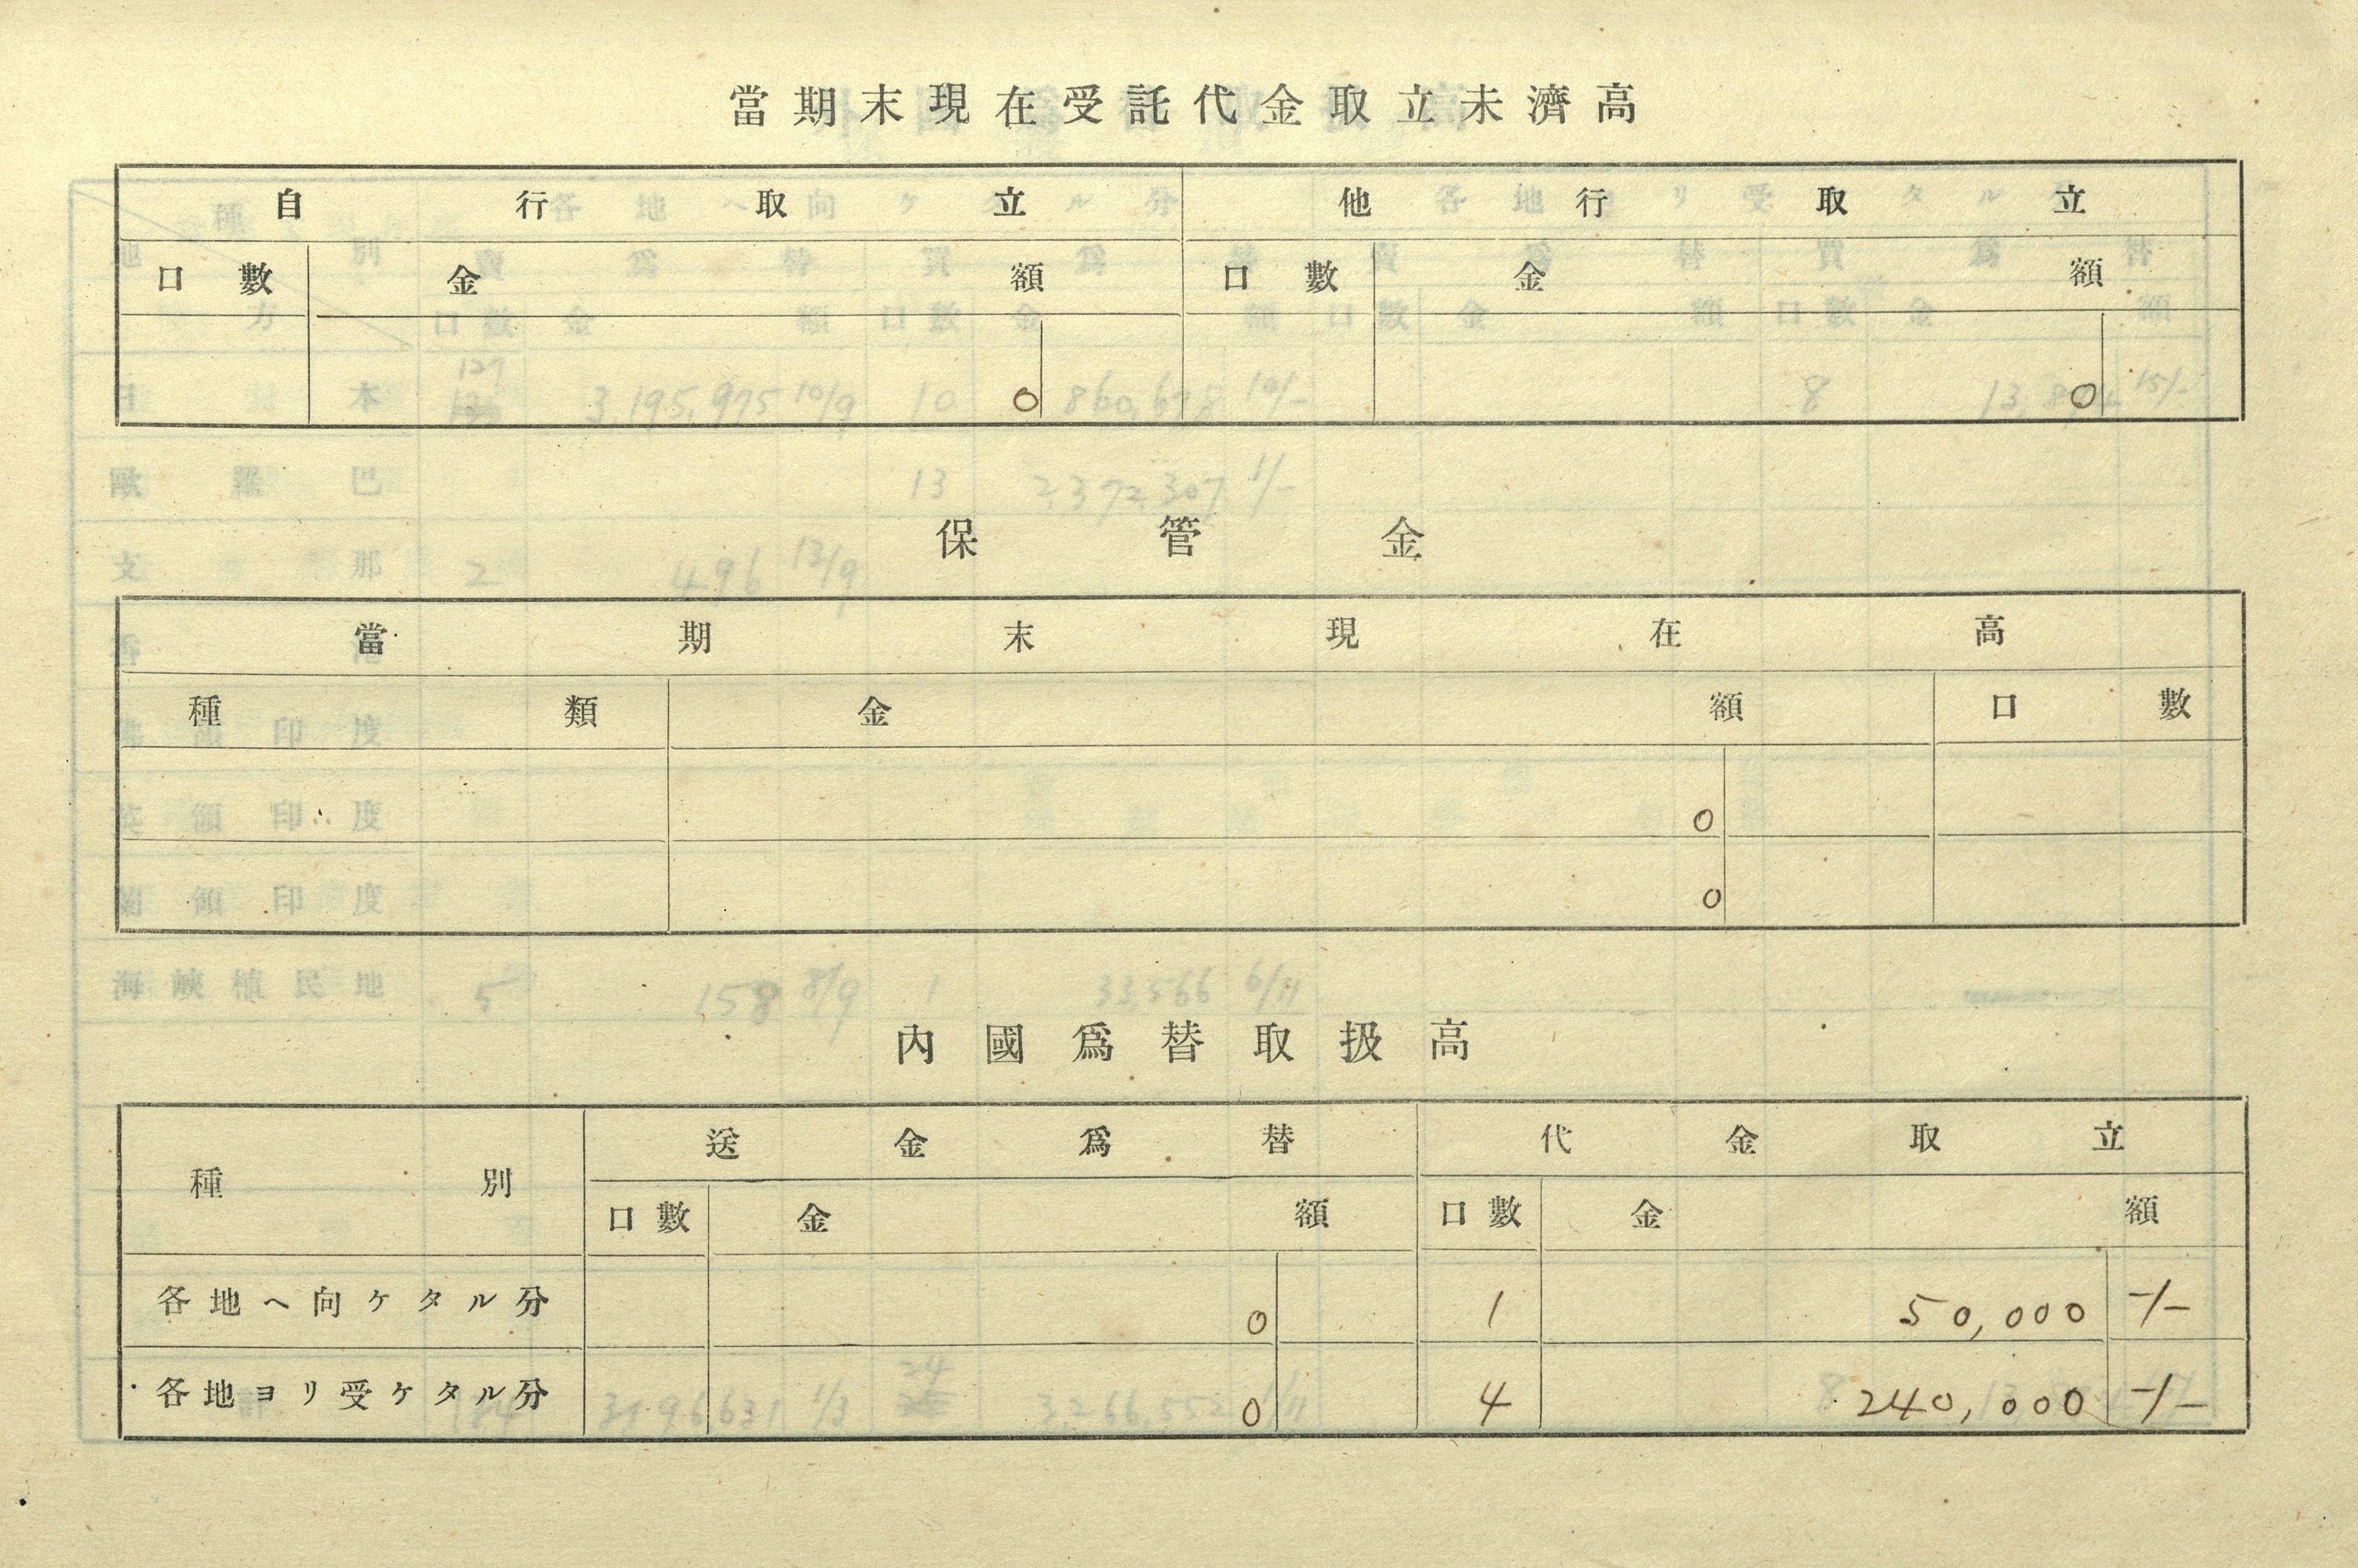 當期末現在受託代金取立未濟高
自行取立 他行取立
口數 金額 口數 金額
0 0
保管金
當期末現在高
種類 金額 口數
0
0
內國爲替取扱高
種別 送金爲替 代金取立
口數 金額 口數 金額
各地ヘ向ケタル分 0 1 50,000 -/-
各地ヨリ受ケタル分 0 4 240,000 -/-